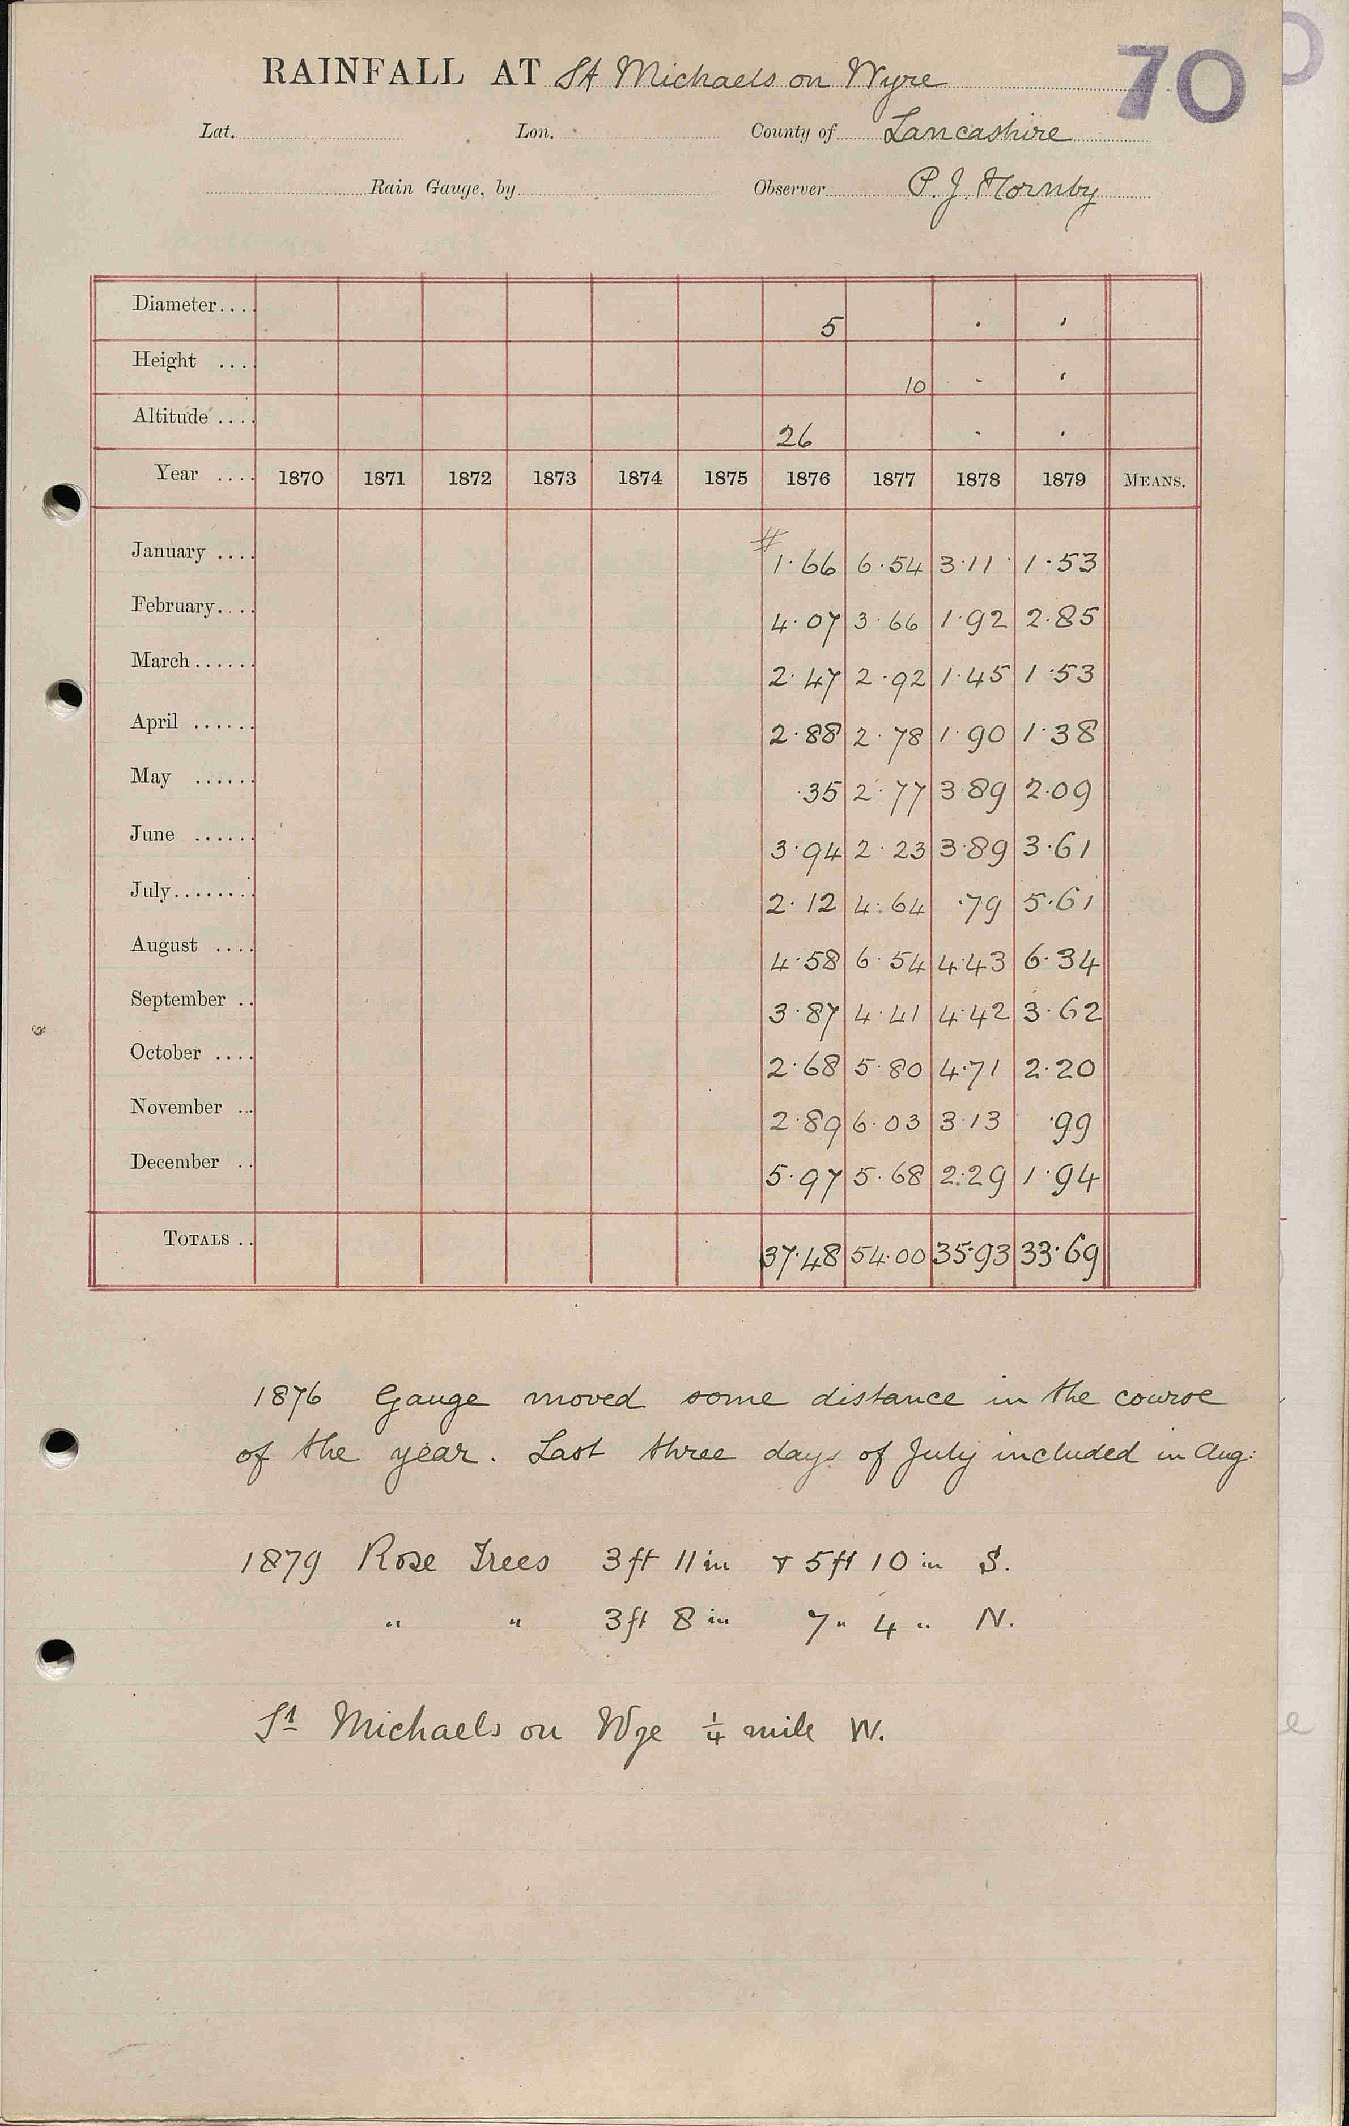 RAINFALL AT St Michaels on Wyre 70
Lat. Lon. County of Lancashire
Rain Gauge, by Observer P. J. Hornby
Diameter.... 5 · ·
Height .... 10 · ·
Altitude .... 26 · ·
Year .... 1870 1871 1872 1873 1874 1875 1876 1877 1878 1879 MEANS.
January .... # 1·66 6·54 3·11 1·53
February.... 4·07 3·66 1·92 2·85
March...... 2·47 2·92 1·45 1·53
April ...... 2·88 2·78 1·90 1·38
May ...... ·35 2·77 3·89 2·09
June ...... 3·94 2·23 3·89 3·61
July........ 2·12 4·64 ·79 5·61
August .... 4·58 6·54 4·43 6·34
September .. 3·87 4·41 4·42 3·62
October .... 2·68 5·80 4·71 2·20
November ... 2·89 6·03 3·13 ·99
December .. 5·97 5·68 2·29 1·94
TOTALS .. 37·48 54·00 35·93 33·69
1876 Gauge moved some distance in the course
of the year. Last three days of July included in Aug:
1879 Rose Trees 3ft 11in & 5ft 10in S.
" " 3ft 8in 7" 4" N.
St Michaels on Wye 1/4 mile W.